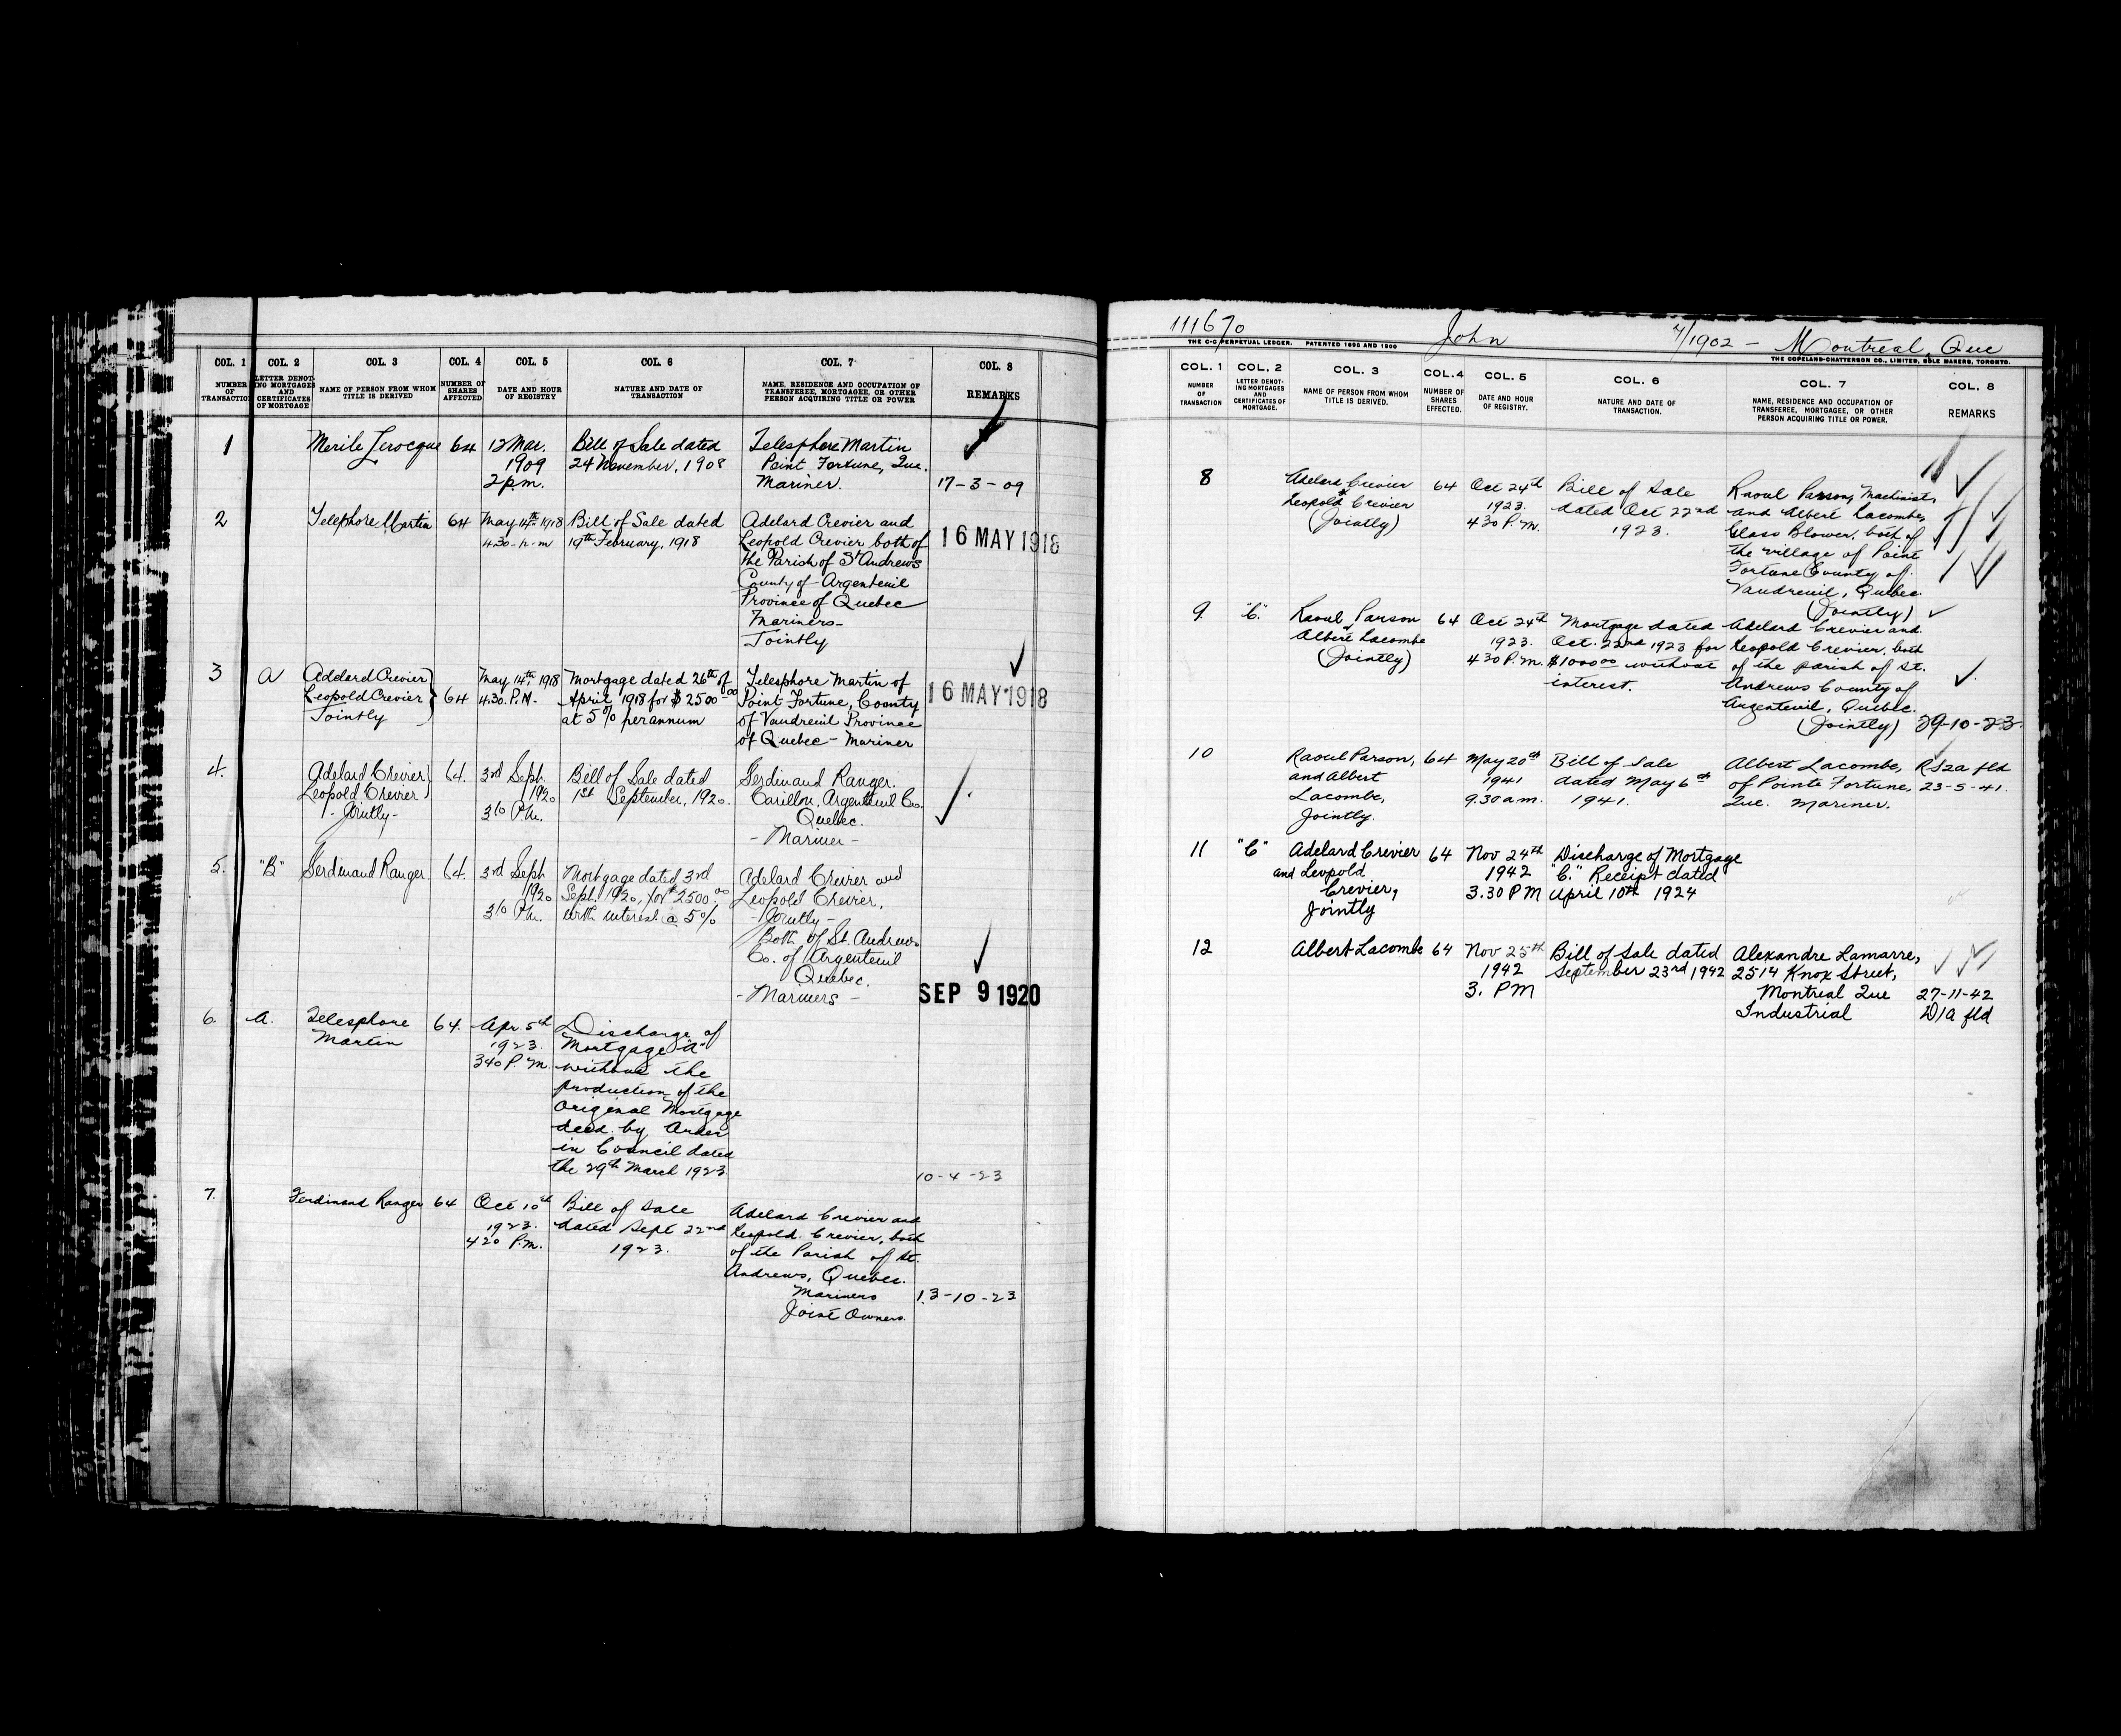 COL. 1 COL. 2 COL. 3 COL. 4 COL. 5 COL. 6 COL. 7 COL. 8
NUMBER OF TRANSACTION
LETTER DENOTING MORTGAGES AND CERTIFICATES OF MORTGAGE
NAME OF PERSON FROM WHOM TITLE IS DERIVED
NUMBER OF SHARES AFFECTED
DATE AND HOUR OF REGISTRY
NATURE AND DATE OF TRANSACTION
NAME, RESIDENCE AND OCCUPATION OF TRANSFEREE, MORTGAGEE, OR OTHER PERSON ACQUIRING TITLE OR POWER
REMARKS
1 Merile Lerocque 64 12 Mar. Bill of Sale dated Telesphore Martin
1909 24 November, 1908 Point Fortune, Que.
2 p.m. Mariner. 17-3-09
2 Telephore Martin 64 May 14th 1918 Bill of Sale dated Adelard Crevier and
4.30-p-m 19th February, 1918 Leopold Crevier both of 16 MAY 1918
the Parish of St Andrews
County of Argenteuil
Province of Quebec
Mariners-
Jointly
3 A Adelard Crevier May 14th 1918 Mortgage dated 26th of Telesphore Martin of
Leopold Crevier 64 4.30. P.M. April 1918 for $2500.00 Point Fortune, County 16 MAY 1918
Jointly at 5% per annum of Vaudreuil Province
of Quebec - Mariner
4. Adelard Crevier 64. 3rd Sept. Bill of Sale dated Ferdinand Ranger.
Leopold Crevier 1920 1st September, 1920. Carillon, Argenteuil Co.
- Jointly - 3 10 P.M. Quebec.
- Mariner -
5. "B" Ferdinand Ranger. 64. 3rd Sept Mortgage dated 3rd Adelard Crevier and
1920 Sept. 1920, for $2500.00 Leopold Crevier,
3 10 P.M. with interest @ 5% - Jointly -
Both of St. Andrews
Co. of Argenteuil
Quebec.
- Mariners - SEP 9 1920
6. A. Telesphore 64. Apr. 5th Discharge of
Martin 1923. Mortgage "A"
3 40 P.M. without the
production of the
original Mortgage
deed by Order
in Council dated
the 29th March 1923 10-4-23
7. Ferdinand Ranger 64 Oct 10th Bill of Sale Adelard Crevier and
1923. dated Sept 22nd Leopold Crevier, both
4 20 P.M. 1923. of the Parish of St.
Andrews, Quebec.
Mariners 13-10-23
Joint Owners.
111670 John 7/1902 - Montreal, Que
THE C-C PERPETUAL LEDGER. PATENTED 1896 AND 1900 THE COPELAND-CHATTERSON CO., LIMITED, SOLE MAKERS, TORONTO.
COL. 1 COL. 2 COL. 3 COL. 4 COL. 5 COL. 6 COL. 7 COL. 8
NUMBER OF TRANSACTION
LETTER DENOTING MORTGAGES AND CERTIFICATES OF MORTGAGE.
NAME OF PERSON FROM WHOM TITLE IS DERIVED.
NUMBER OF SHARES EFFECTED.
DATE AND HOUR OF REGISTRY.
NATURE AND DATE OF TRANSACTION.
NAME, RESIDENCE AND OCCUPATION OF TRANSFEREE, MORTGAGEE, OR OTHER PERSON ACQUIRING TITLE OR POWER.
REMARKS
8 Adelard Crevier 64 Oct 24th Bill of Sale Raoul Parson, Machinist,
& Leopold Crevier 1923. dated Oct 22nd and Albert Lacombe,
(Jointly) 4 30 P.M. 1923. Glass Blower, both of
the village of Point
Fortune County of
Vaudreuil, Quebec.
(Jointly)
9. "C". Raoul Parson 64 Oct 24th Mortgage dated Adelard Crevier and
& Albert Lacombe 1923. Oct. 22nd 1923 for Leopold Crevier, both
(Jointly) 4 30 P.M. $1000.00 without of the parish of St.
interest. Andrews County of
Argenteuil, Quebec.
(Jointly) 29-10-23.
10 Raoul Parson, 64 May 20th Bill of Sale Albert Lacombe, RS2a fld
and Albert 1941 dated May 6th of Pointe Fortune, 23-5-41.
Lacombe, 9.30 a.m. 1941. Que. Mariner.
Jointly.
11 "C" Adelard Crevier 64 Nov 24th Discharge of Mortgage
and Leopold 1942 "C." Receipt dated
Crevier, 3.30 PM April 10th 1924
Jointly
12 Albert Lacombe 64 Nov 25th Bill of Sale dated Alexandre Lamarre,
1942 September 23rd 1942 2514 Knox Street,
3. PM Montreal Que 27-11-42
Industrial D/a fld